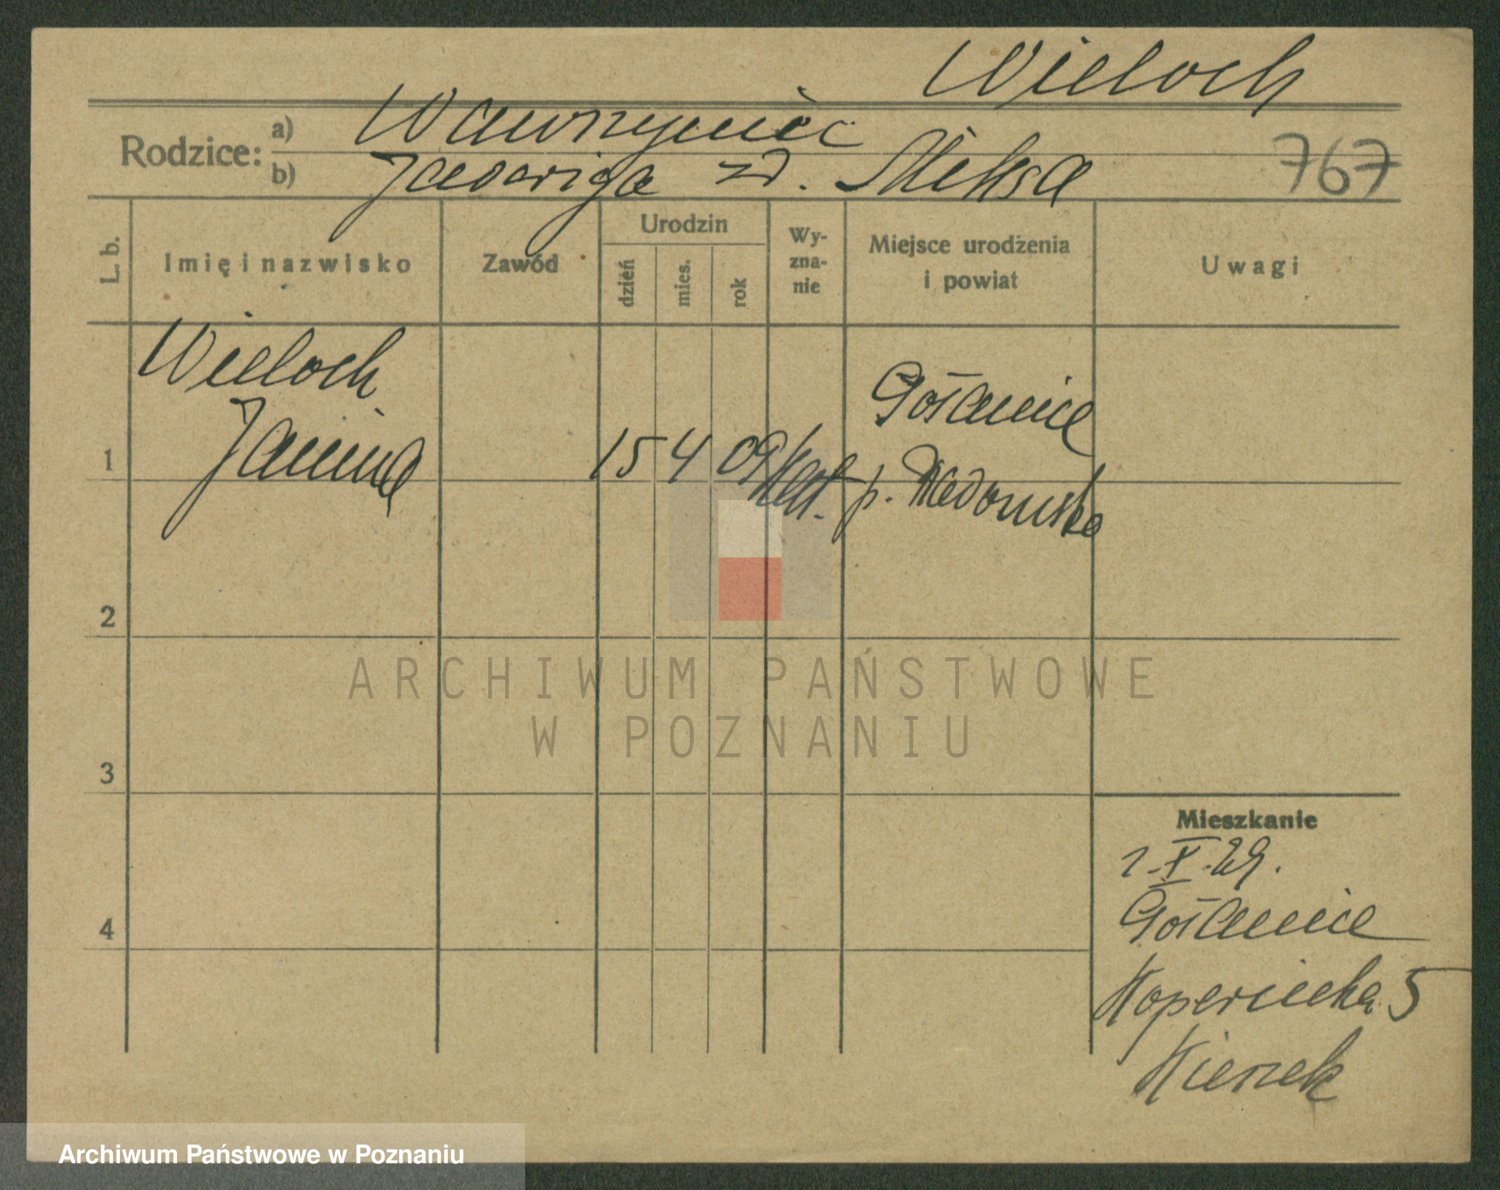 Wieloch
Rodzice: a) Wawrzyniec
b) Jadwiga zd. Miksa
767
L. b.
Imię i nazwisko
Zawód
Urodzin
dzień
mies.
rok
Wy-
zna-
nie
Miejsce urodzenia
i powiat
Uwagi
Wieloch
Janina
1
15 4 09 kat.
Gostanice
2
3
4
Mieszkanie
1.X.29.
5
ARCHIWUM PAŃSTWOWE
W POZNANIU
Archiwum Państwowe w Poznaniu